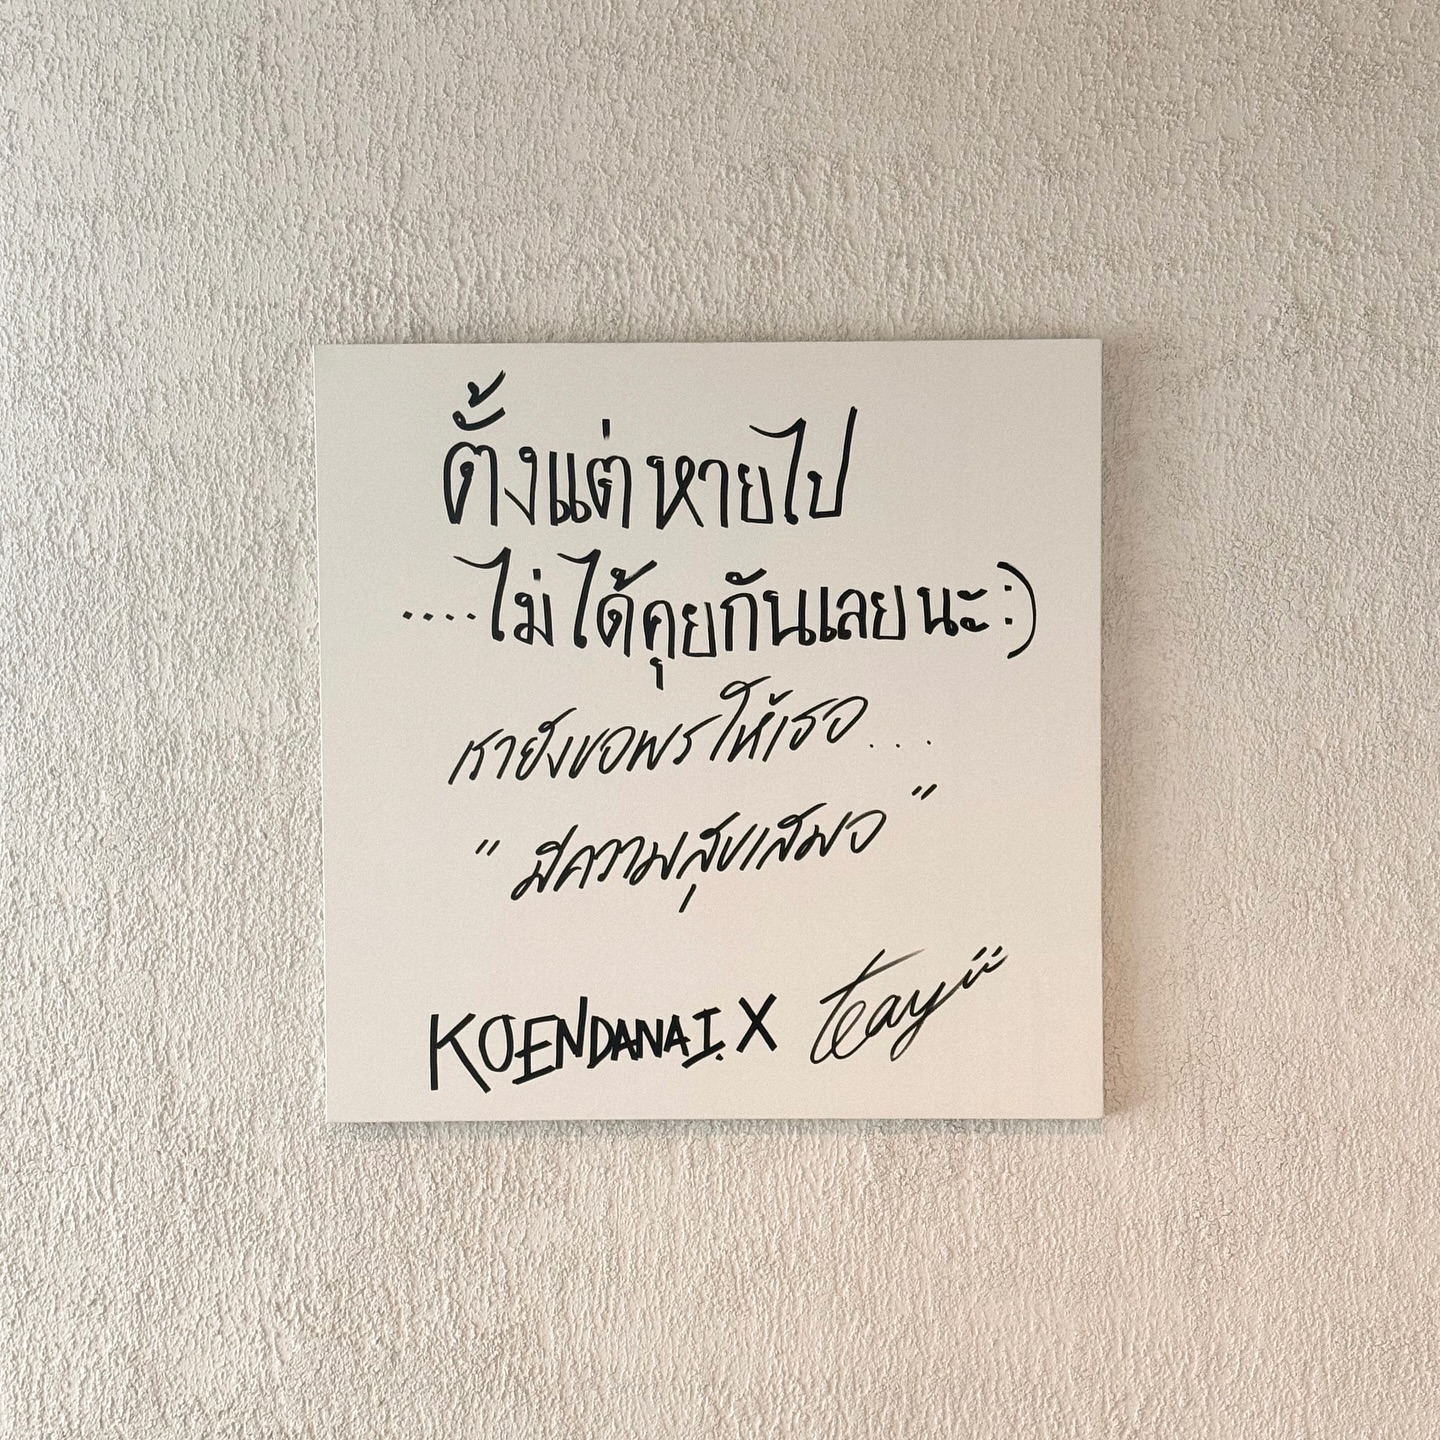 ตั้งแต่หายไป
....ไม่ได้คุยกันเลยนะ:)
เรายังขอพรให้เธอ...
"มีความสุขเสมอ"
KOENDANAI. X teayii